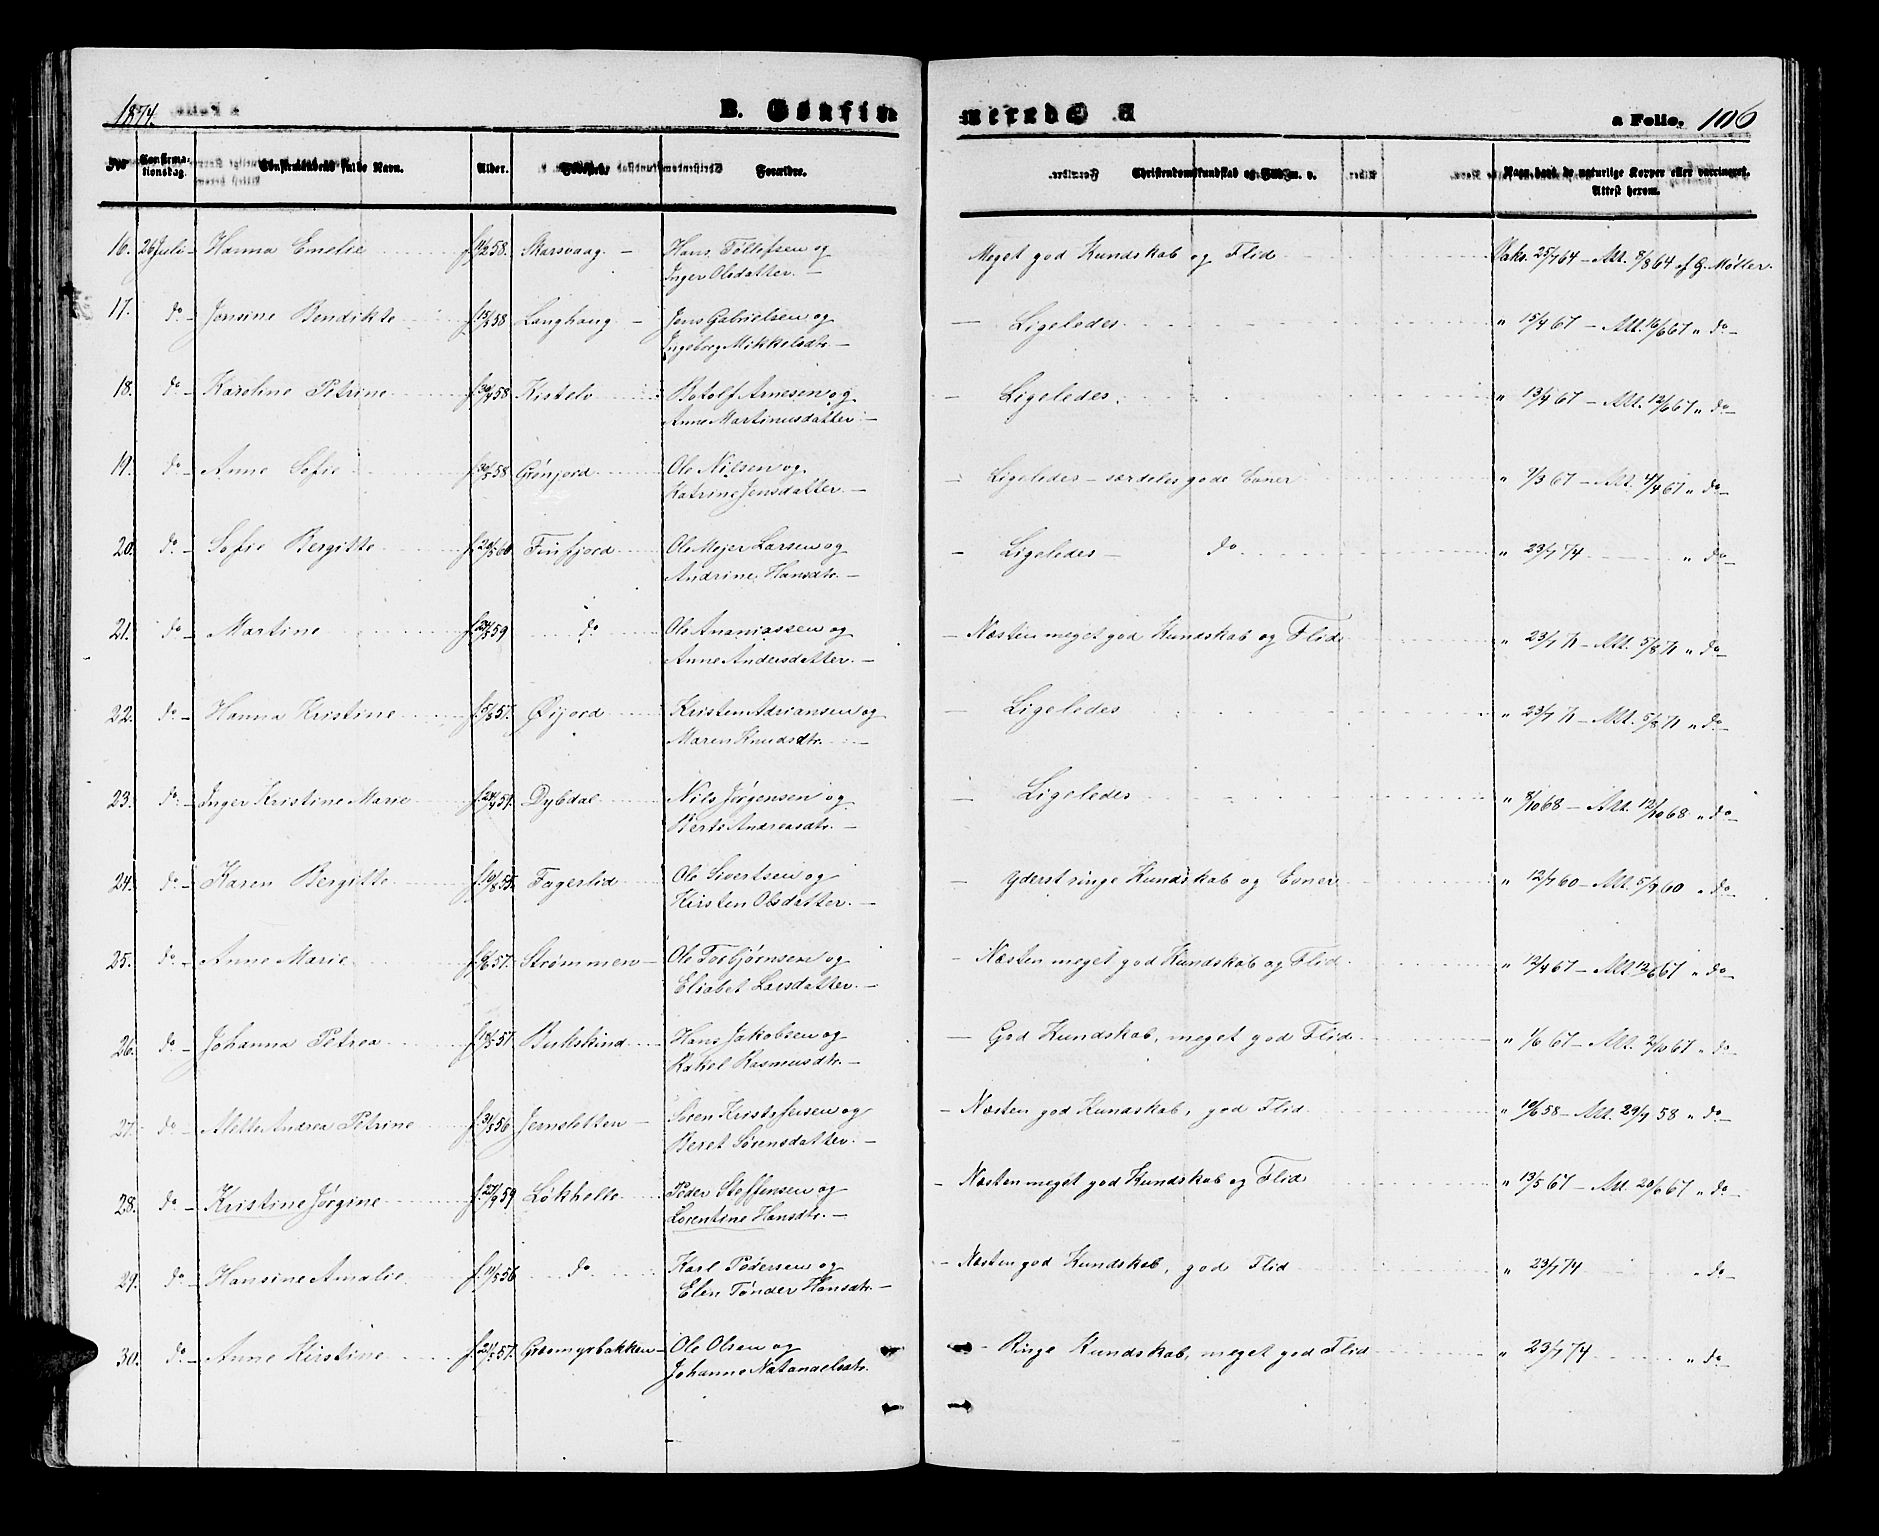 1874.
B. Confir
merede
a Folio. 106
No
Confirma-
tionsdag.
Confirmandens fulde Navn.
Alder.
Forældre.
Christendomskundskab og Flid m. v.
Naar havt de naturlige Kopper eller vaccineret.
Attest herom.
16. 26 Juli - Hanna Emelie f. 58. Skarsvaag. - Hans Tollefsen og
Inger Olsdatter. - Meget god Kundskab og Flid Vaks. 25/7 64 - Att. 8/8 64 af G. Møller.
17. do - Jensine Bendikte f. 58 Langhaug - Jens Gabrielsen og
Ingeborg Mikkelsdtr. - Ligeledes. " 15/4 67 - Att. 16/6 67 " do -
18. do - Karoline Petrine f. 58 Kistelv Botolf Arnesen og
Anne Martinusdatter. - Ligeledes. " 13/4 67 - Att. 12/6 67 " do -
19. do - Anne Sofie f. 58 Grinjord Ole Nilsen og
Katrine Jensdatter. - Ligeledes - særdeles gode Evner " 7/3 67 - Att. 4/4 67 " do -
20. do - Sofie Bergitte f. 60 Finfjord Ole Mejer Larsen og
Andrine Hansdtr. - Ligeledes - do " 23/7 74 " do -
21. do - Martine f. 59 do Ole Ananiassen og
Anne Andersdatter. - Næsten meget god Kundskab og Flid " 23/7 71 - Att. 5/8 71 " do -
22. do - Hanna Kristine f. 57. Øijord Kristen Adriansen og
Maren Knudsdtr. - Ligeledes " 23/7 71 - Att. 5/8 71 " do -
23. do - Inger Kristine Marie f. Dybdal Nils Jørgensen og
Berit Andreasdtr. - Ligeledes " 8/10 68 - Att. 12/10 68 " do -
24. do - Karen Bergitte f. Fagerlid Ole Sivertsen og
Kirsten Olsdatter. - Yderst ringe Kundskab og Evner " 12/7 60 - Att. 5/9 60 " do -
25. do - Anne Marie f. 57. Strømmen - Ole Torbjørnsen og
Elisabet Larsdatter. - Næsten meget god Kundskab og Flid " 12/4 67 - Att. 12/6 67 " do -
26. do - Johanna Petrea f. 57. Bukskind Hans Jakobsen og
Rakel Rasmusdtr. - God Kundskab, meget god Flid " 1/6 67 - Att. 2/10 67 " do -
27. do - Alette Andrea Petrine f. 56 Jernsletten - Sören Kristofersen og
Beret Sörensdatter. - Næsten god Kundskab, god Flid " 10/6 58 - Att. 29/7 58 " do -
28. do - Kristine Jørgine f. 27/9 59 Løkhelle Peder Steffensen og
Lorentine Hansdtr. - Næsten meget god Kundskab og Flid " 13/5 67 - Att. 20/6 67 " do -
29. do - Hansine Amalie f. 11/5 56 do Karl Pedersen og
Elen Tønder Hansdtr. - Næsten god Kundskab, god Flid " 23/7 74 " do -
30. do - Anne Kirstine f. 57. Græsmyrbakken - Ole Olsen og
Johanne Natanaelsdtr. - Ringe Kundskab, meget god Flid " 23/7 74 " do -